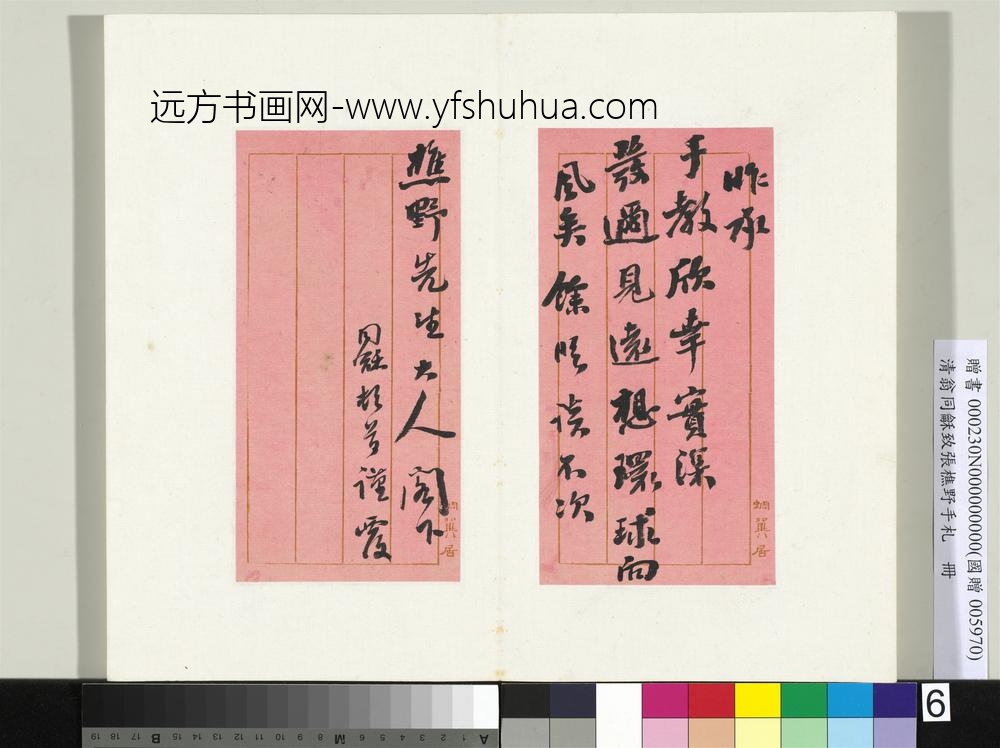 远方书画网-www.yfshuhua.com
昨承
手教欣幸實深
發遞見遠想環球向
風矣餘晤談不次
蜩翼居
樵野先生大人閣下
同龢頓首謹覆
蜩翼居
贈書 000230N000000000(國贈 005970)
清翁同龢致張樵野手札 冊
6
19 18 17 16 15 B 14 13 12 11 10 9 8 M 7 6 5 4 3 2 1 A